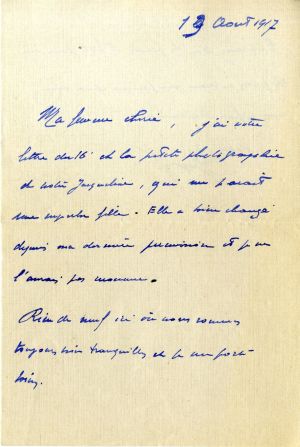 19 Août 1917
Ma femme chérie, j'ai votre
lettre du 16 et la petite photographie
de notre Jacqueline, qui me paraît
une superbe fille. Elle a bien changé
depuis ma dernière permission et je ne
l'aurais pas reconnue.
Rien de neuf ici où nous sommes
toujours bien tranquilles et je me porte
bien.